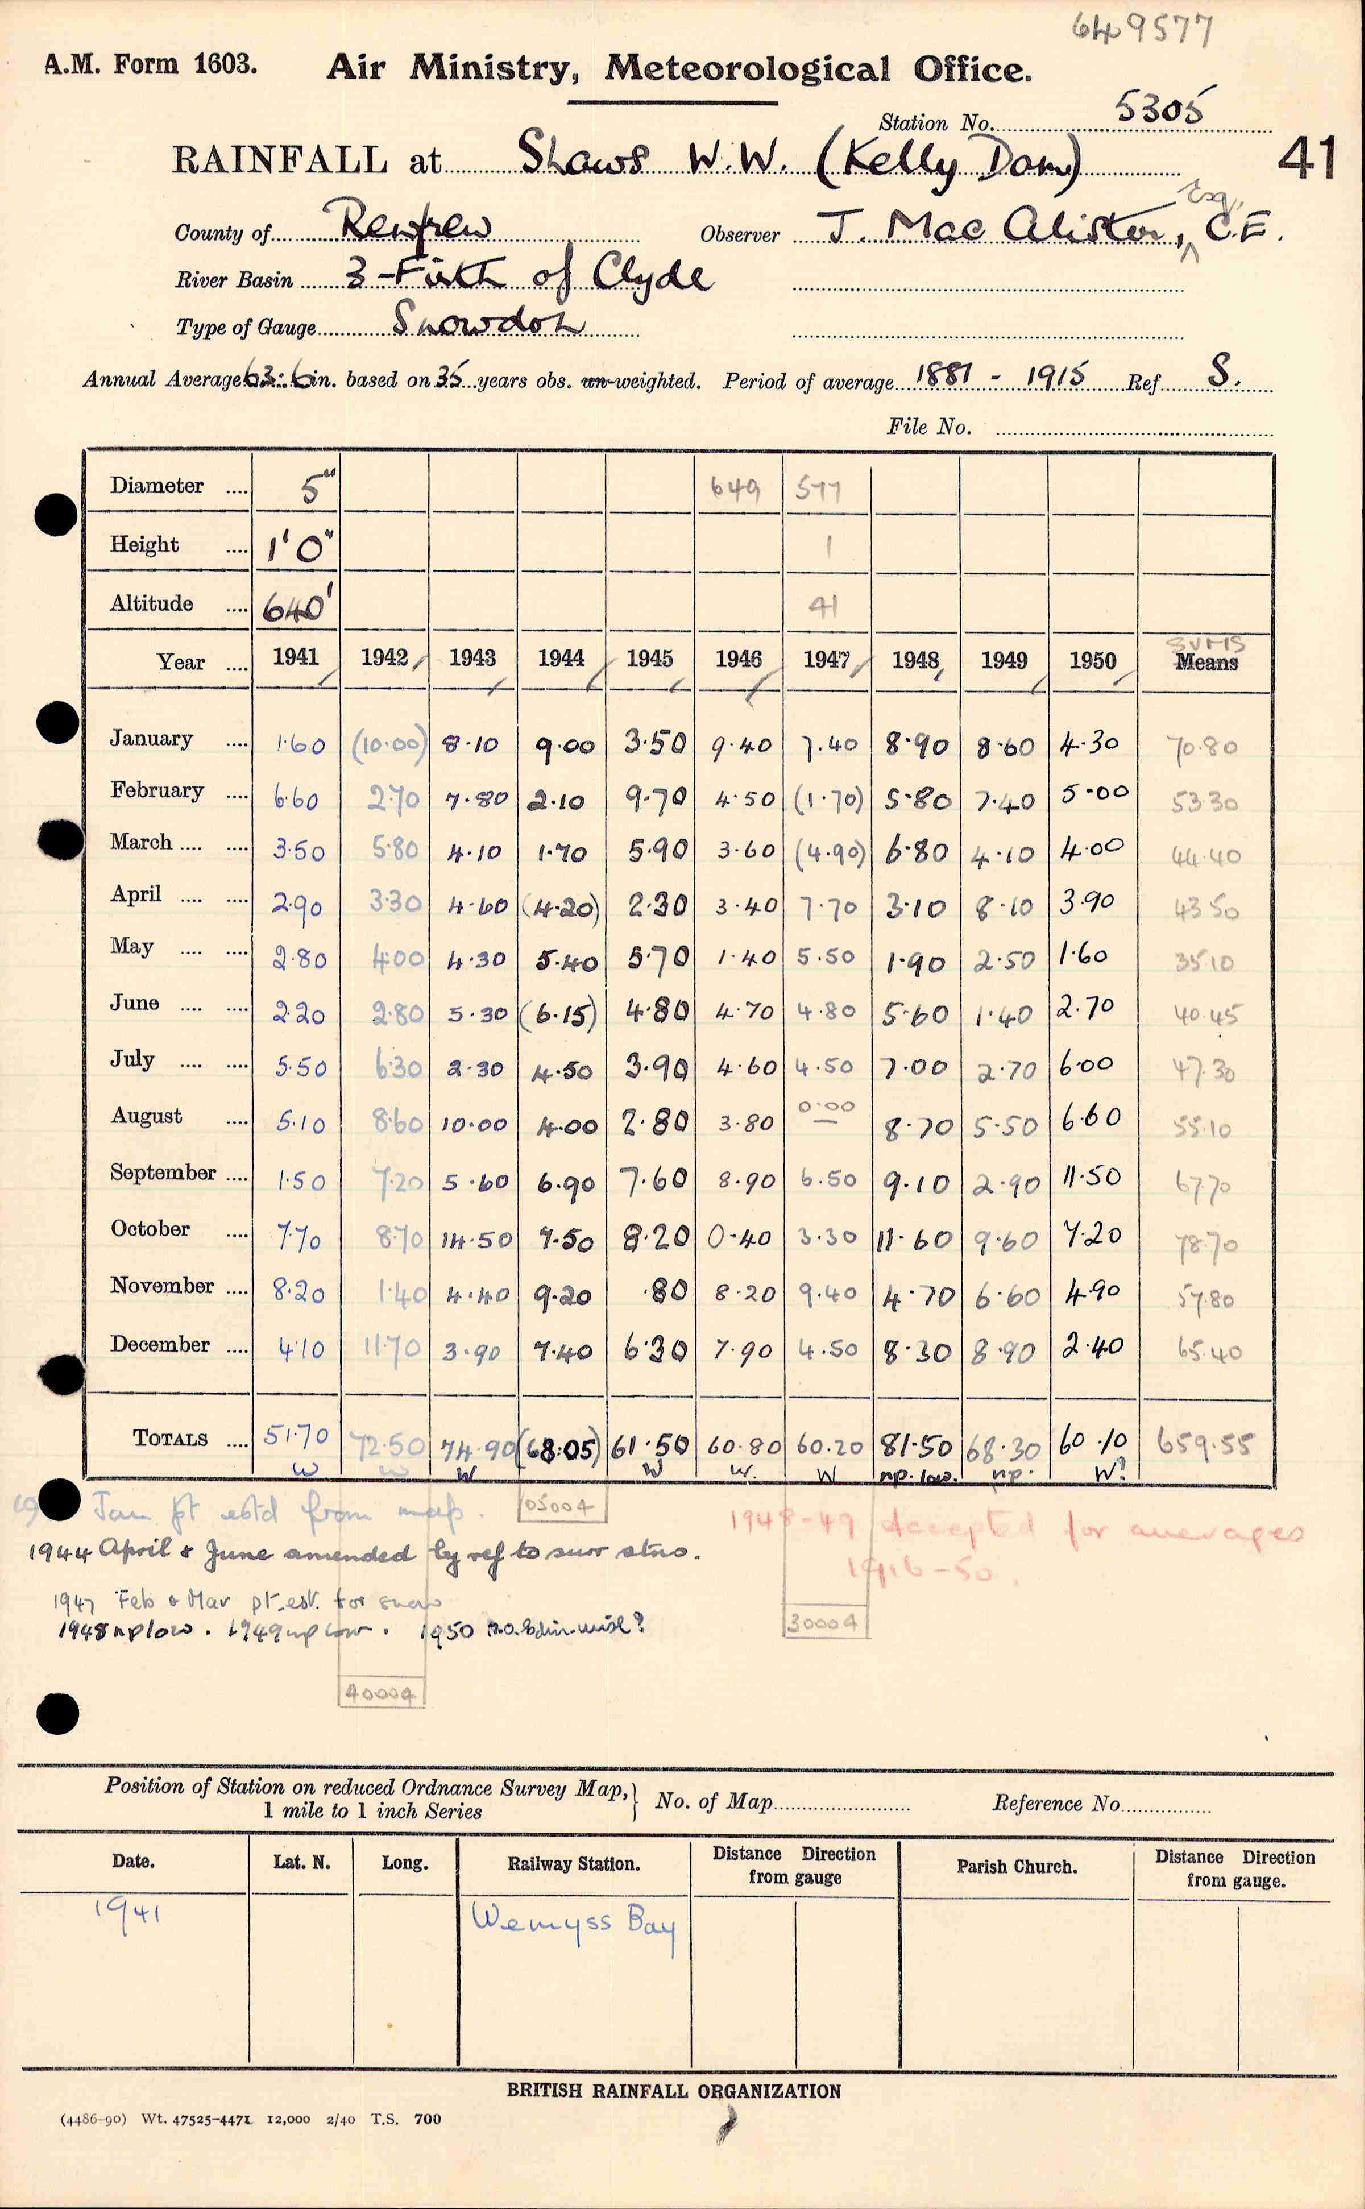 649577
A.M. Form 1603. Air Ministry, Meteorological Office.
Station No. 5305
RAINFALL at Shaws W.W. (Kelly Dam) 41
County of Renfrew Observer J. Mac Alister, Esq, C.E.
River Basin 3 - Firth of Clyde
Type of Gauge Snowdon
Annual Average 63.6 in. based on 35 years obs. un-weighted. Period of average 1881 - 1915 Ref S.
File No.
Diameter .... 5" 649 577
Height .... 1'0" 1
Altitude .... 640' 41
SUMS
Year .... 1941 1942 1943 1944 1945 1946 1947 1948 1949 1950 Means
January .... 1.60 (10.00) 8.10 9.00 3.50 9.40 7.40 8.90 8.60 4.30 70.80
February .... 6.60 2.70 7.80 2.10 9.70 4.50 (1.70) 5.80 7.40 5.00 53.30
March .... .... 3.50 5.80 4.10 1.70 5.90 3.60 (4.90) 6.80 4.10 4.00 44.40
April .... .... 2.90 3.30 4.60 (4.20) 2.30 3.40 7.70 3.10 8.10 3.90 43.50
May .... .... 2.80 4.00 4.30 5.40 5.70 1.40 5.50 1.90 2.50 1.60 35.10
June .... .... 2.20 2.80 5.30 (6.15) 4.80 4.70 4.80 5.60 1.40 2.70 40.45
July .... .... 5.50 6.30 2.30 4.50 3.90 4.60 4.50 7.00 2.70 6.00 47.30
August .... 5.10 8.60 10.00 4.00 2.80 3.80 0.00 — 8.70 5.50 6.60 55.10
September .... 1.50 7.20 5.60 6.90 7.60 8.90 6.50 9.10 2.90 11.50 67.70
October .... 7.70 8.70 14.50 7.50 8.20 0.40 3.30 11.60 9.60 7.20 78.70
November .... 8.20 1.40 4.40 9.20 .80 8.20 9.40 4.70 6.60 4.90 57.80
December .... 4.10 11.70 3.90 7.40 6.30 7.90 4.50 8.30 8.90 2.40 65.40
TOTALS .... 51.70 72.50 74.90 (68.05) 61.50 60.80 60.20 81.50 68.30 60.10 659.55
W W W W W. W np. low. np. W?
Jan pt estd from map. 05004
1948-49 Accepted for averages
1916-50.
1944 April & June amended by ref to surr stns.
1947 Feb & Mar pt. est. for snow
1948 np low. 1949 np low. 1950
30004
40004
Position of Station on reduced Ordnance Survey Map, } No. of Map Reference No
1 mile to 1 inch Series
Date. Lat. N. Long. Railway Station. Distance Direction from gauge Parish Church. Distance Direction from gauge.
1941 Wemyss Bay
BRITISH RAINFALL ORGANIZATION
(4486-90) Wt. 47525-4471 12,000 2/40 T.S. 700